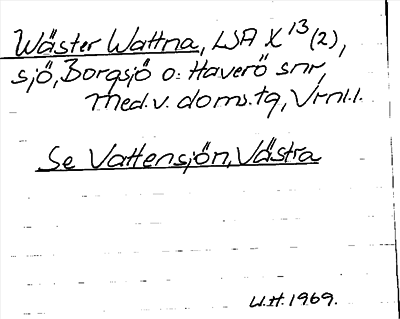 Wäster Wattna, LSA X 13(2),
sjö, Borgsjö o. Haverö snr,
Med.v. doms.tg, Vrnl.l.
Se Vattensjön, Västra
W.H. 1969.